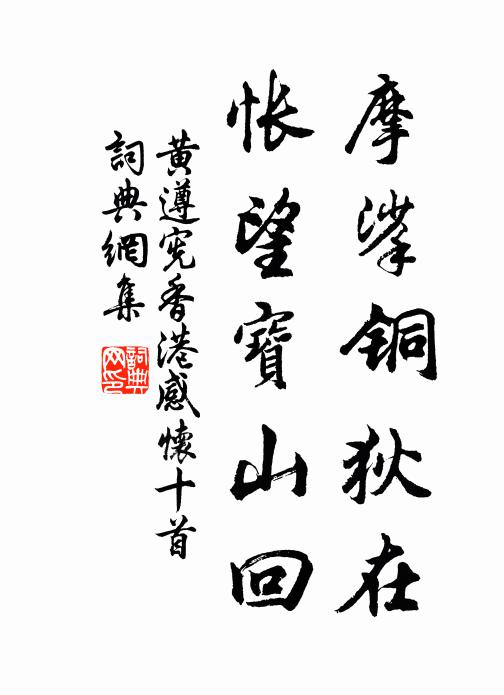 摩挲铜狄在
怅望寶山回
黄遵宪香港感懷十首
詞典網集
詞典网印